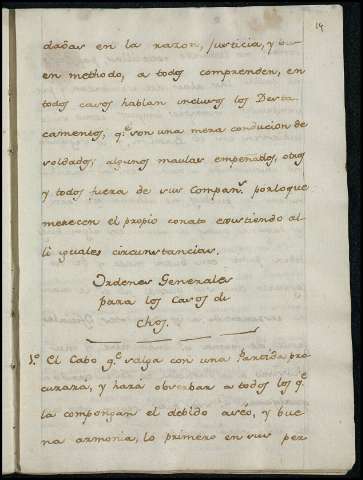 14
dadas en la razon, Justicia, y bu
en methodo, a todos comprenden, en
todos casos hablan inclusos los Desta
camentos, q.e son una mera conducion de
soldados; algunos maulas empeñados, otros
y todos fuera de sus Compañ.s por loque
merecen el propio conato existiendo al
li iguales circunstancias.
Ordenes Generales
para los Casos di
chos.
1.º El Cabo q.e salga con una Partida pro
curará, y hará observar a todos los q.e
la compongan el debido aséo, y bue
na armonia, lo primero en sus per